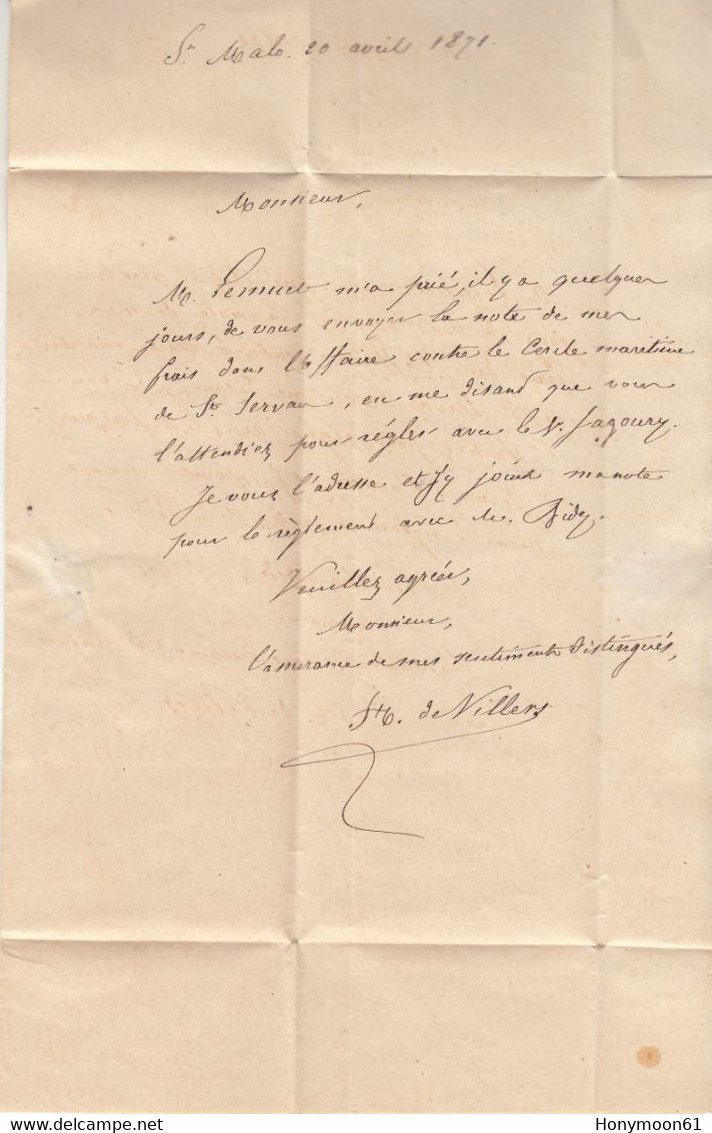 St Malo. 20 avril 1871.
Monsieur,
M. m'a prié, il y a quelques
jours, de vous envoyer la note de mes
frais dans l'affaire contre le Cercle maritime
de St Servan, en me disant que vous
l'attendiez pour régler avec le
Je vous l'adresse et j'y joins ma note
pour le règlement avec M.
Veuillez agréer,
Monsieur,
l'assurance de mes sentiments distingués,
H. de Villers
delcampe.net
Honymoon61